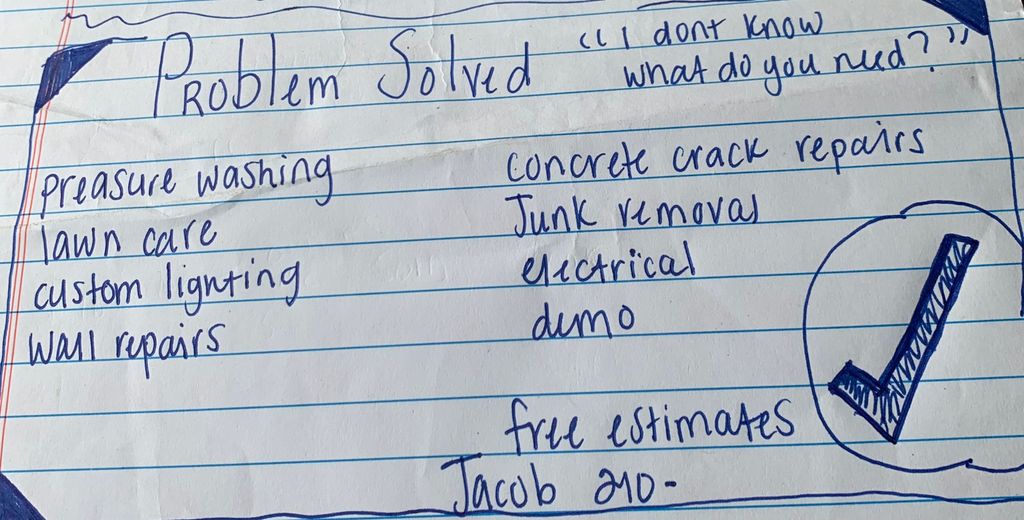 Problem Solved "I dont know
what do you need?"
preasure washing
lawn care
custom lighting
wall repairs
concrete crack repairs
Junk removal
electrical
demo
free estimates
Jacob 210-